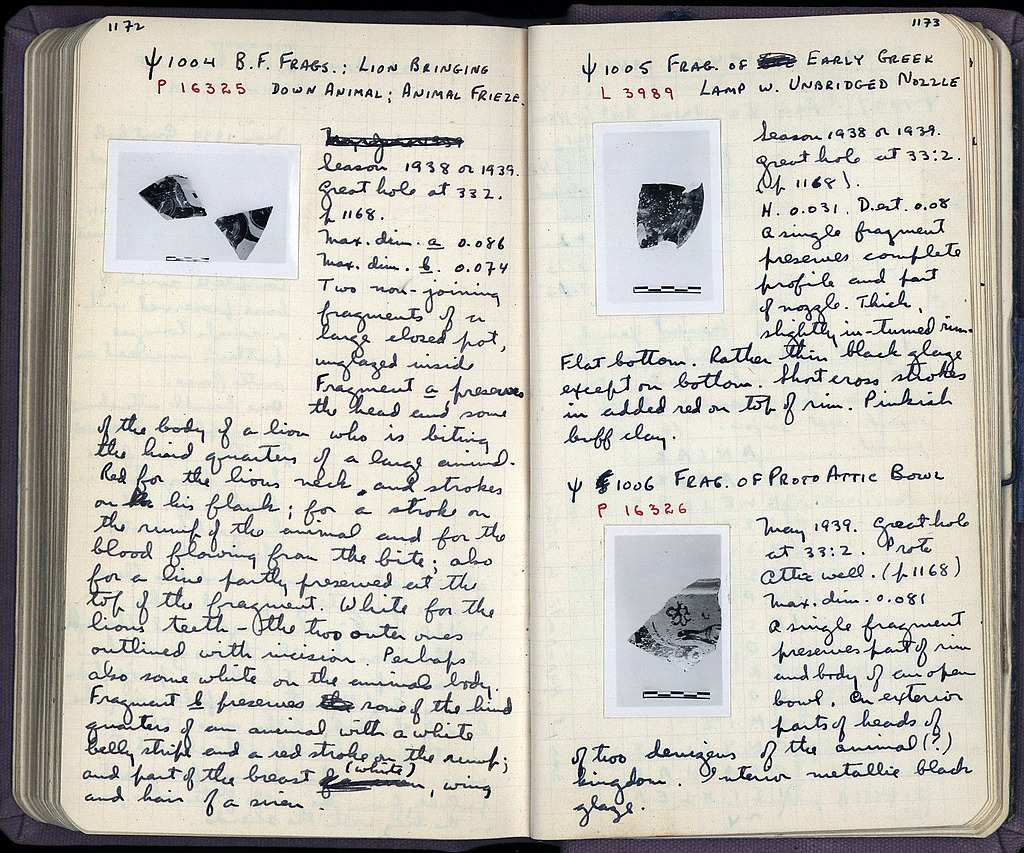 1172
ψ 1004 B.F. FRAGS.; LION BRINGING
P 16325 DOWN ANIMAL; ANIMAL FRIEZE.
Season 1938 or 1939.
Great hole at 332.
p 1168.
Max. dim. a 0.086
Max. dim. b. 0.074
Two non-joining
fragments of a
large closed pot,
unglazed inside
Fragment a preserves
the head and some
of the body of a lion who is biting
the hind quarters of a large animal.
Red for the lions neck, and strokes
on his flank; for a stroke on
the rump of the animal and for the
blood flowing from the bite; also
for a line partly preserved at the
top of the fragment. White for the
lions teeth – the two outer ones
outlined with incision. Perhaps
also some white on the animals body.
Fragment b preserves some of the hind
quarters of an animal with a white
belly stripe and a red stroke on the rump;
and part of the breast (white), wing
and hair of a siren.
1173
ψ 1005 FRAG. OF EARLY GREEK
L 3989 LAMP W. UNBRIDGED NOZZLE
Season 1938 or 1939.
Great hole at 33:2.
(p 1168).
H. 0.031. D. est. 0.08
A single fragment
preserves complete
profile and part
of nozzle. Thick,
slightly in-turned rim.
Flat bottom. Rather thin black glaze
except on bottom. Short cross strokes
in added red on top of rim. Pinkish
buff clay.
ψ 1006 FRAG. OF PROTO ATTIC BOWL
P 16326
May 1939. Great hole
at 33:2. Proto
Attic well. (p 1168)
Max. dim. 0.081
A single fragment
preserves part of rim
and body of an open
bowl. On exterior
parts of heads of
of two denizens of the animal (?)
kingdom. Interior metallic black
glaze.